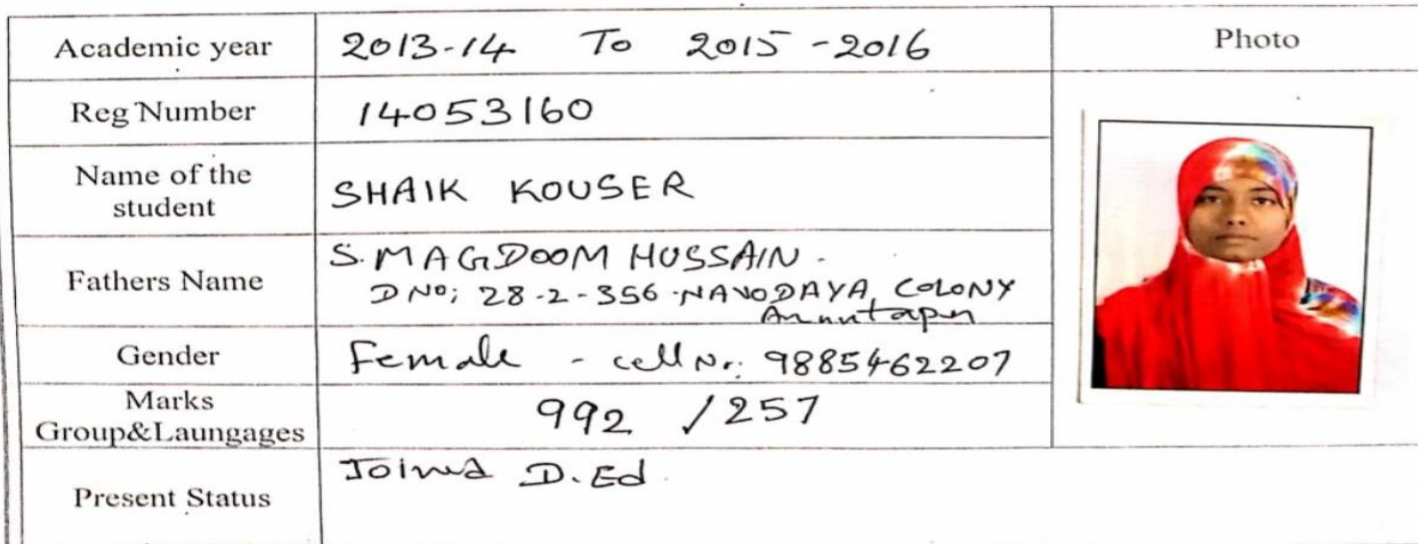 Academic year 2013-14 To 2015-2016 Photo
Reg Number 14053160
Name of the
student SHAIK KOUSER
Fathers Name S. MAGDOOM HUSSAIN.
D No; 28-2-356 NAVODAYA COLONY
Gender Female - cell No: 9885462207
Marks
Group&Laungages 992 /257
Present Status Joined D.Ed.